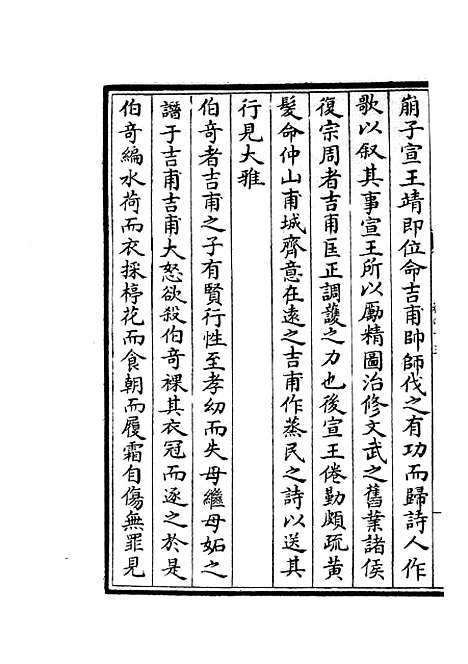 崩子宣王靖即位命吉甫帥師伐之有功而歸詩人作
歌以叙其事宣王所以勵精圖治修文武之舊業諸侯
復宗周者吉甫匡正調護之力也後宣王倦勤頗疏黄
髮命仲山甫城齊意在逺之吉甫作蒸民之詩以送其
行見大雅
伯竒者吉甫之子有賢行性至孝幼而失母繼母妬之
譖于吉甫吉甫大怒欲殺伯竒裸其衣冠而逐之於是
伯竒編水荷而衣採楟花而食朝而履霜自傷無罪見